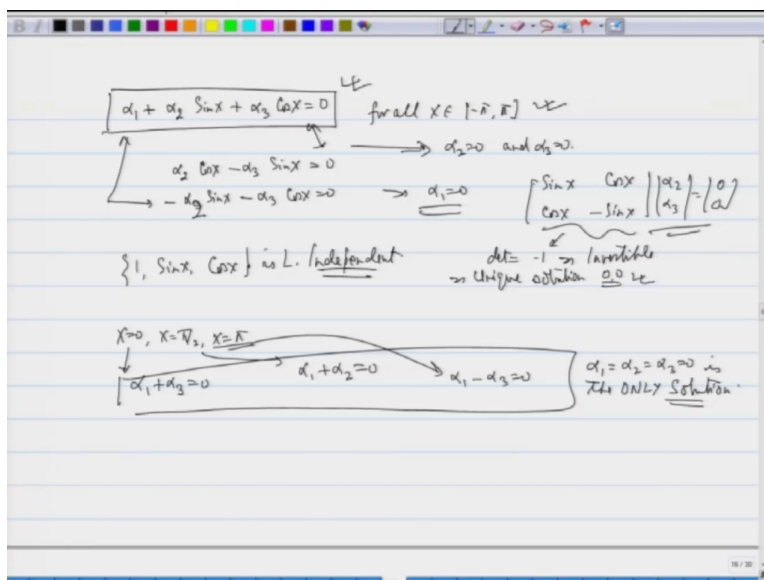 α₁ + α₂ Sinx + α₃ Cosx = 0 for all x ∈ [-π, π]
α₂ Cosx - α₃ Sinx = 0 → α₂=0 and α₃=0.
- α₂ Sinx - α₃ Cosx = 0 → α₁=0
[Sinx Cosx
Cosx -Sinx] [α₂
α₃] = [0
0]
{1, Sinx, Cosx} is L. Independent
det = -1 ⇒ Invertible
⇒ Unique solution 0,0
x=0, x=π/2, x=π
α₁+α₃=0 α₁+α₂=0 α₁-α₃=0
α₁=α₂=α₃=0 is
the ONLY Solution.
16 / 30